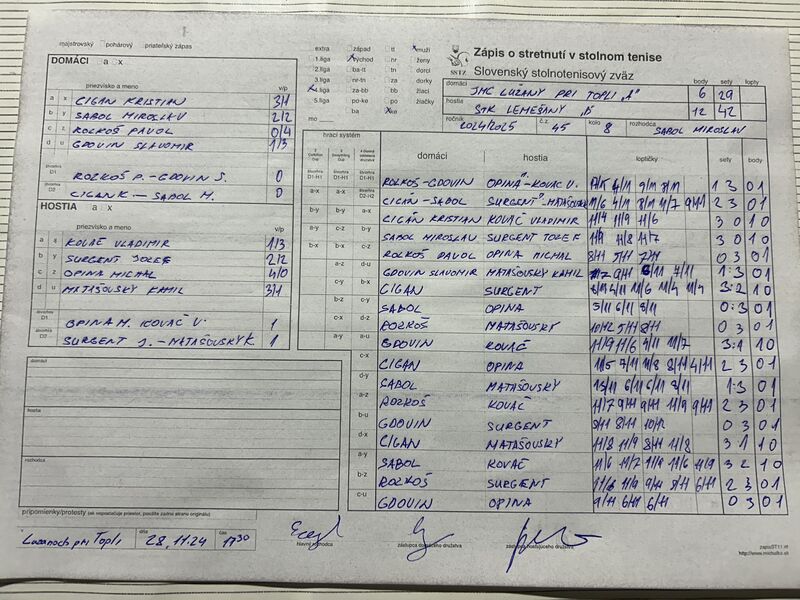 majstrovský pohárový priateľský zápas
DOMÁCI a x
priezvisko a meno v/p
a x CIGAN KRISTIAN 3/1
b y SABOL MIROSLAV 2/2
c z ROZKOŠ PAVOL 0/4
d u GDOVIN SLAVOMIR 1/3
štvorhra D1 ROZKOŠ P. - GDOVIN S. 0
štvorhra D2 CIGAN K — SABOL M. 0
HOSTIA a x
priezvisko a meno v/p
a x KOVAČ VLADIMIR 1/3
b y SURGENT JOZEF 2/2
c z OPINA MICHAL 4/0
d u MATAŠOVSKÝ KAMIL 3/1
štvorhra D1 OPINA M. KOVAČ V. 1
štvorhra D2 SURGENT J. - MATAŠOVSKÝ K. 1
domáci
hostia
rozhodca
pripomienky/protesty (ak nepostačuje priestor, použite zadnú stranu originálu)
dňa 28.11.24 čas 17:30
hlavný rozhodca zástupca domáceho družstva zástupca hosťujúceho družstva
extra západ tl muži
1.liga východ nr ženy
2.liga ba-tt tn dorci
3.liga nr-tn za dorky
4.liga za-bb bb žiaci
5.liga po-ke po žiačky
mo ba ke
Zápis o stretnutí v stolnom tenise
SSTZ Slovenský stolnotenisový zväz
body sety lopty
domáci JMC LUŽANY PRI TOPLI "A" 6 29
hostia STK LEMEŠANY "B" 12 42
ročník 2024/2025 č.z. 45 kolo 8 rozhodca SABOL MIROSLAV
hrací systém domáci hostia loptičky sety body
ROZKOŠ-GDOVIN OPINA-KOVAČ V. 4/11 9/11 8/11 1 3 0 1
CIGÁN-SABOL SURGENT-MATAŠOVSKÝ 11/6 4/11 8/11 11/7 9/11 2 3 0 1
CIGAN KRISTIAN KOVAČ VLADIMIR 11/4 11/9 11/6 3 0 1 0
SABOL MIROSLAV SURGENT JOZEF 11/8 11/7 3 0 1 0
ROZKOŠ PAVOL OPINA MICHAL 8/11 5/11 7/11 0 3 0 1
GDOVIN SLAVOMIR MATAŠOVSKÝ KAMIL 9/11 7/11 1:3 0 1
CIGAN SURGENT 4/11 11/6 11/4 3:2 1 0
SABOL OPINA 5/11 6/11 8/11 0:3 0 1
ROZKOŠ MATAŠOVSKÝ 10/12 5/11 8/11 0 3 0 1
GDOVIN KOVAČ 11/9 11/6 7/11 11/7 3:1 1 0
CIGAN OPINA 11/5 7/11 11/8 8/11 4/11 2 3 0 1
SABOL MATAŠOVSKÝ 13/11 6/11 6/11 7/11 1:3 0 1
ROZKOŠ KOVAČ 11/7 9/11 9/11 11/9 9/11 2 3 0 1
GDOVIN SURGENT 9/11 8/11 10/12 0 3 0 1
CIGAN MATAŠOVSKÝ 11/8 11/9 8/11 11/8 3 1 1 0
SABOL KOVAČ 11/6 11/7 11/6 11/9 3 2 1 0
ROZKOŠ SURGENT 11/8 11/9 9/11 8/11 6/11 2 3 0 1
GDOVIN OPINA 9/11 6/11 6/11 0 3 0 1
http://www.michutko.sk